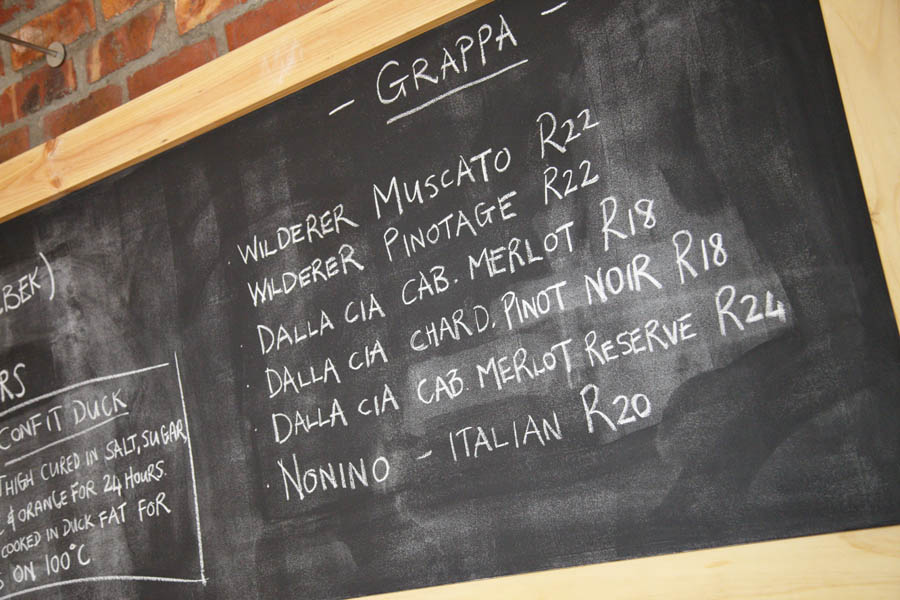 - GRAPPA -
WILDERER MUSCATO R22
WILDERER PINOTAGE R22
DALLA CIA CAB. MERLOT R18
DALLA CIA CHARD. PINOT NOIR R18
DALLA CIA CAB. MERLOT RESERVE R24
NONINO - ITALIAN R20
CONFIT DUCK
THIGH CURED IN SALT, SUGAR,
& ORANGE FOR 24 HOURS.
COOKED IN DUCK FAT FOR
ON 100°C